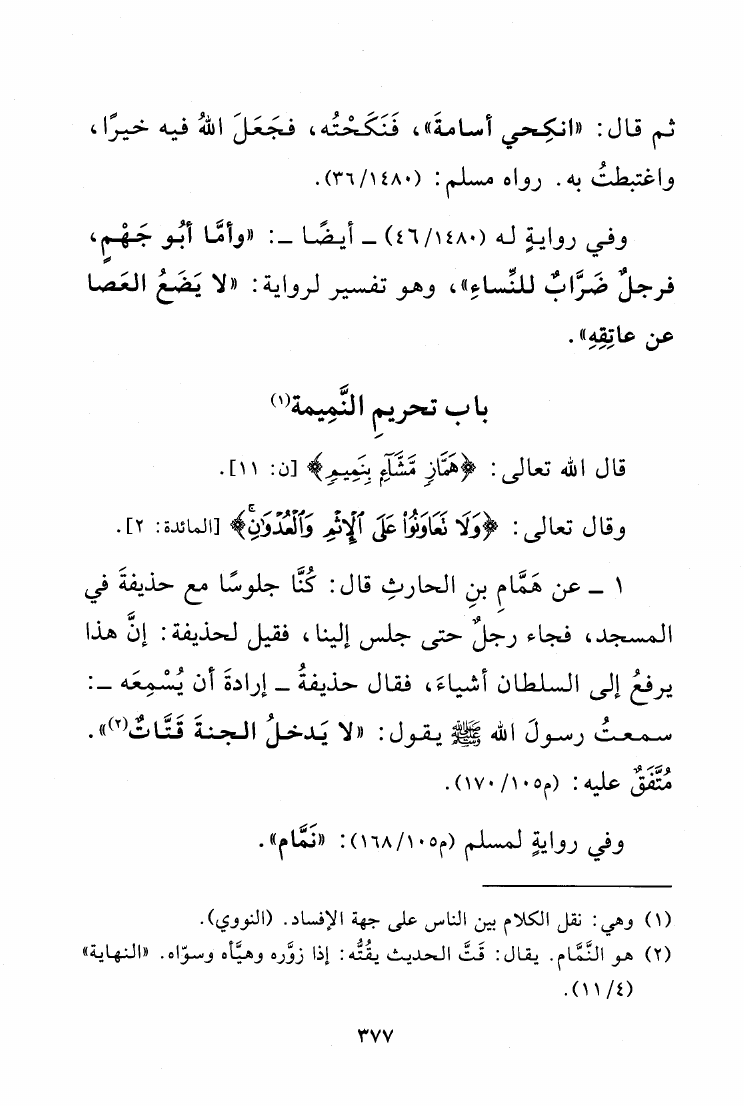 ثم قال: «انكِحي أسامةَ»، فَنَكَحْتُه، فجَعَلَ اللهُ فيه خيرًا،
واغتبطتُ به. رواه مسلم: (٣٦/١٤٨٠).
وفي روايةٍ له (٤٦/١٤٨٠) ـ أيضًا ـ: «وأمَّا أبُو جَهْمٍ،
فرجلٌ ضَرَّابٌ للنِّساءِ»، وهو تفسير لرواية: «لا يَضَعُ العَصا
عن عاتِقِهِ».
باب تحريمِ النَّمِيمة(١)
قال الله تعالى: ﴿هَمَّازٍ مَّشَّآءٍ بِنَمِيمٍ﴾ [ن: ١١].
وقال تعالى: ﴿وَلَا تَعَاوَنُوا۟ عَلَى ٱلْإِثْمِ وَٱلْعُدْوَٰنِۚ﴾ [المائدة: ٢].
١ ـ عن هَمَّامِ بنِ الحارثِ قال: كُنَّا جلوسًا مع حذيفةَ في
المسجد، فجاء رجلٌ حتى جلس إلينا، فقيل لحذيفة: إنَّ هذا
يرفعُ إلى السلطان أشياءَ، فقال حذيفةُ ـ إرادةَ أن يُسْمِعَه ـ:
سمعتُ رسولَ الله ﷺ يقول: «لا يَدخلُ الجنةَ قَتَّاتٌ(٢)».
مُتَّفَقٌ عليه: (م١٧٠/١٠٥).
وفي روايةٍ لمسلم (م١٦٨/١٠٥): «نَمَّام».
(١) وهي: نقل الكلام بين الناس على جهة الإفساد. (النووي).
(٢) هو النَّمَّام. يقال: قَتَّ الحديث يقُتُّه: إذا زوَّره وهيَّأه وسوّاه. «النهاية»
(١١/٤).
٣٧٧